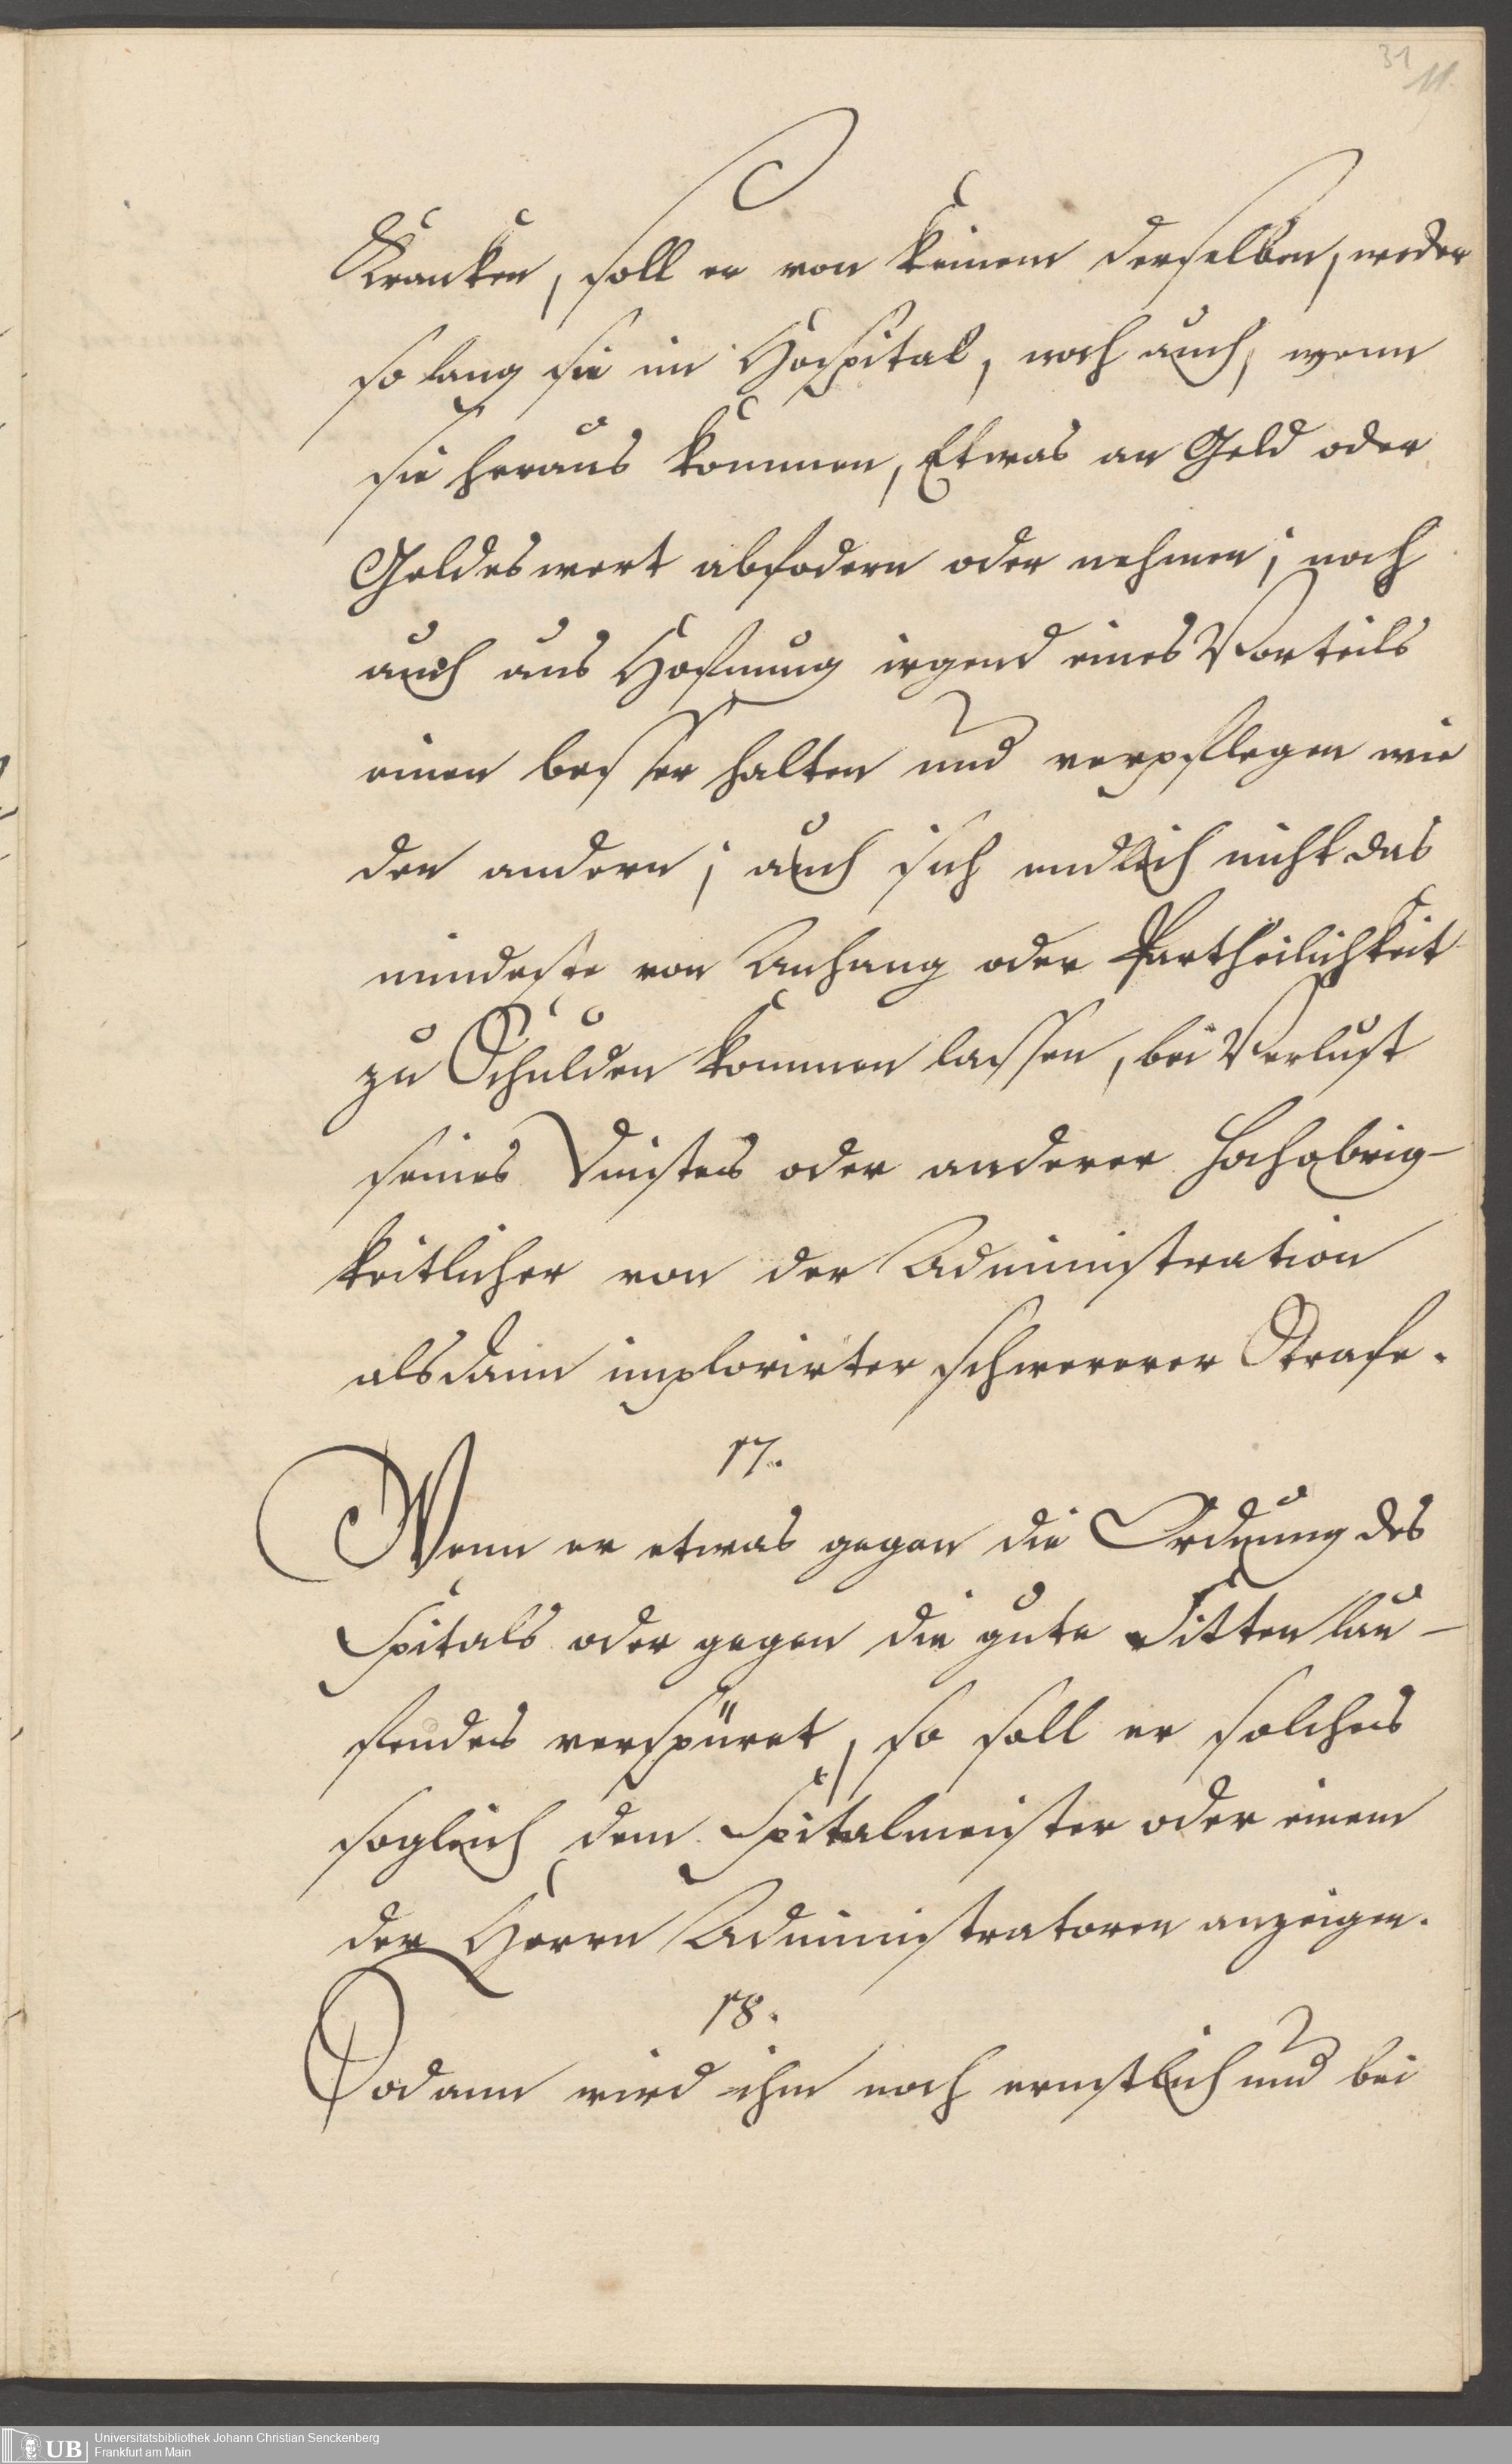 31
11.
Kranken, soll er von keinem derselben, weder
so lang sie im Hospital, noch auch, wenn
sie heraus kommen, Etwas an Geld oder
Geldeswert abfodern oder nehmen; noch
auch aus Hofnung irgend eines Vorteils
einen besser halten und verpflegen wie
den andern; auch sich endlich nicht das
mindeste von Anhang oder Partheilichkeit
zu Schulden kommen lassen, bei Verlust
seines Dienstes oder anderer hochobrig-
keitlicher von der Administration
alsdann implorirter schwererer Strafe.
17.
Wenn er etwas gegen die Ordnung des
Spitals oder gegen die gute Sitten lau-
fendes verspüret, so soll er solches
sogleich dem Spitalmeister oder einem
der Herrn Administratoren anzeigen.
18.
Sodann wird ihm noch ernstlich und bei
UB
Universitätsbibliothek Johann Christian Senckenberg
Frankfurt am Main